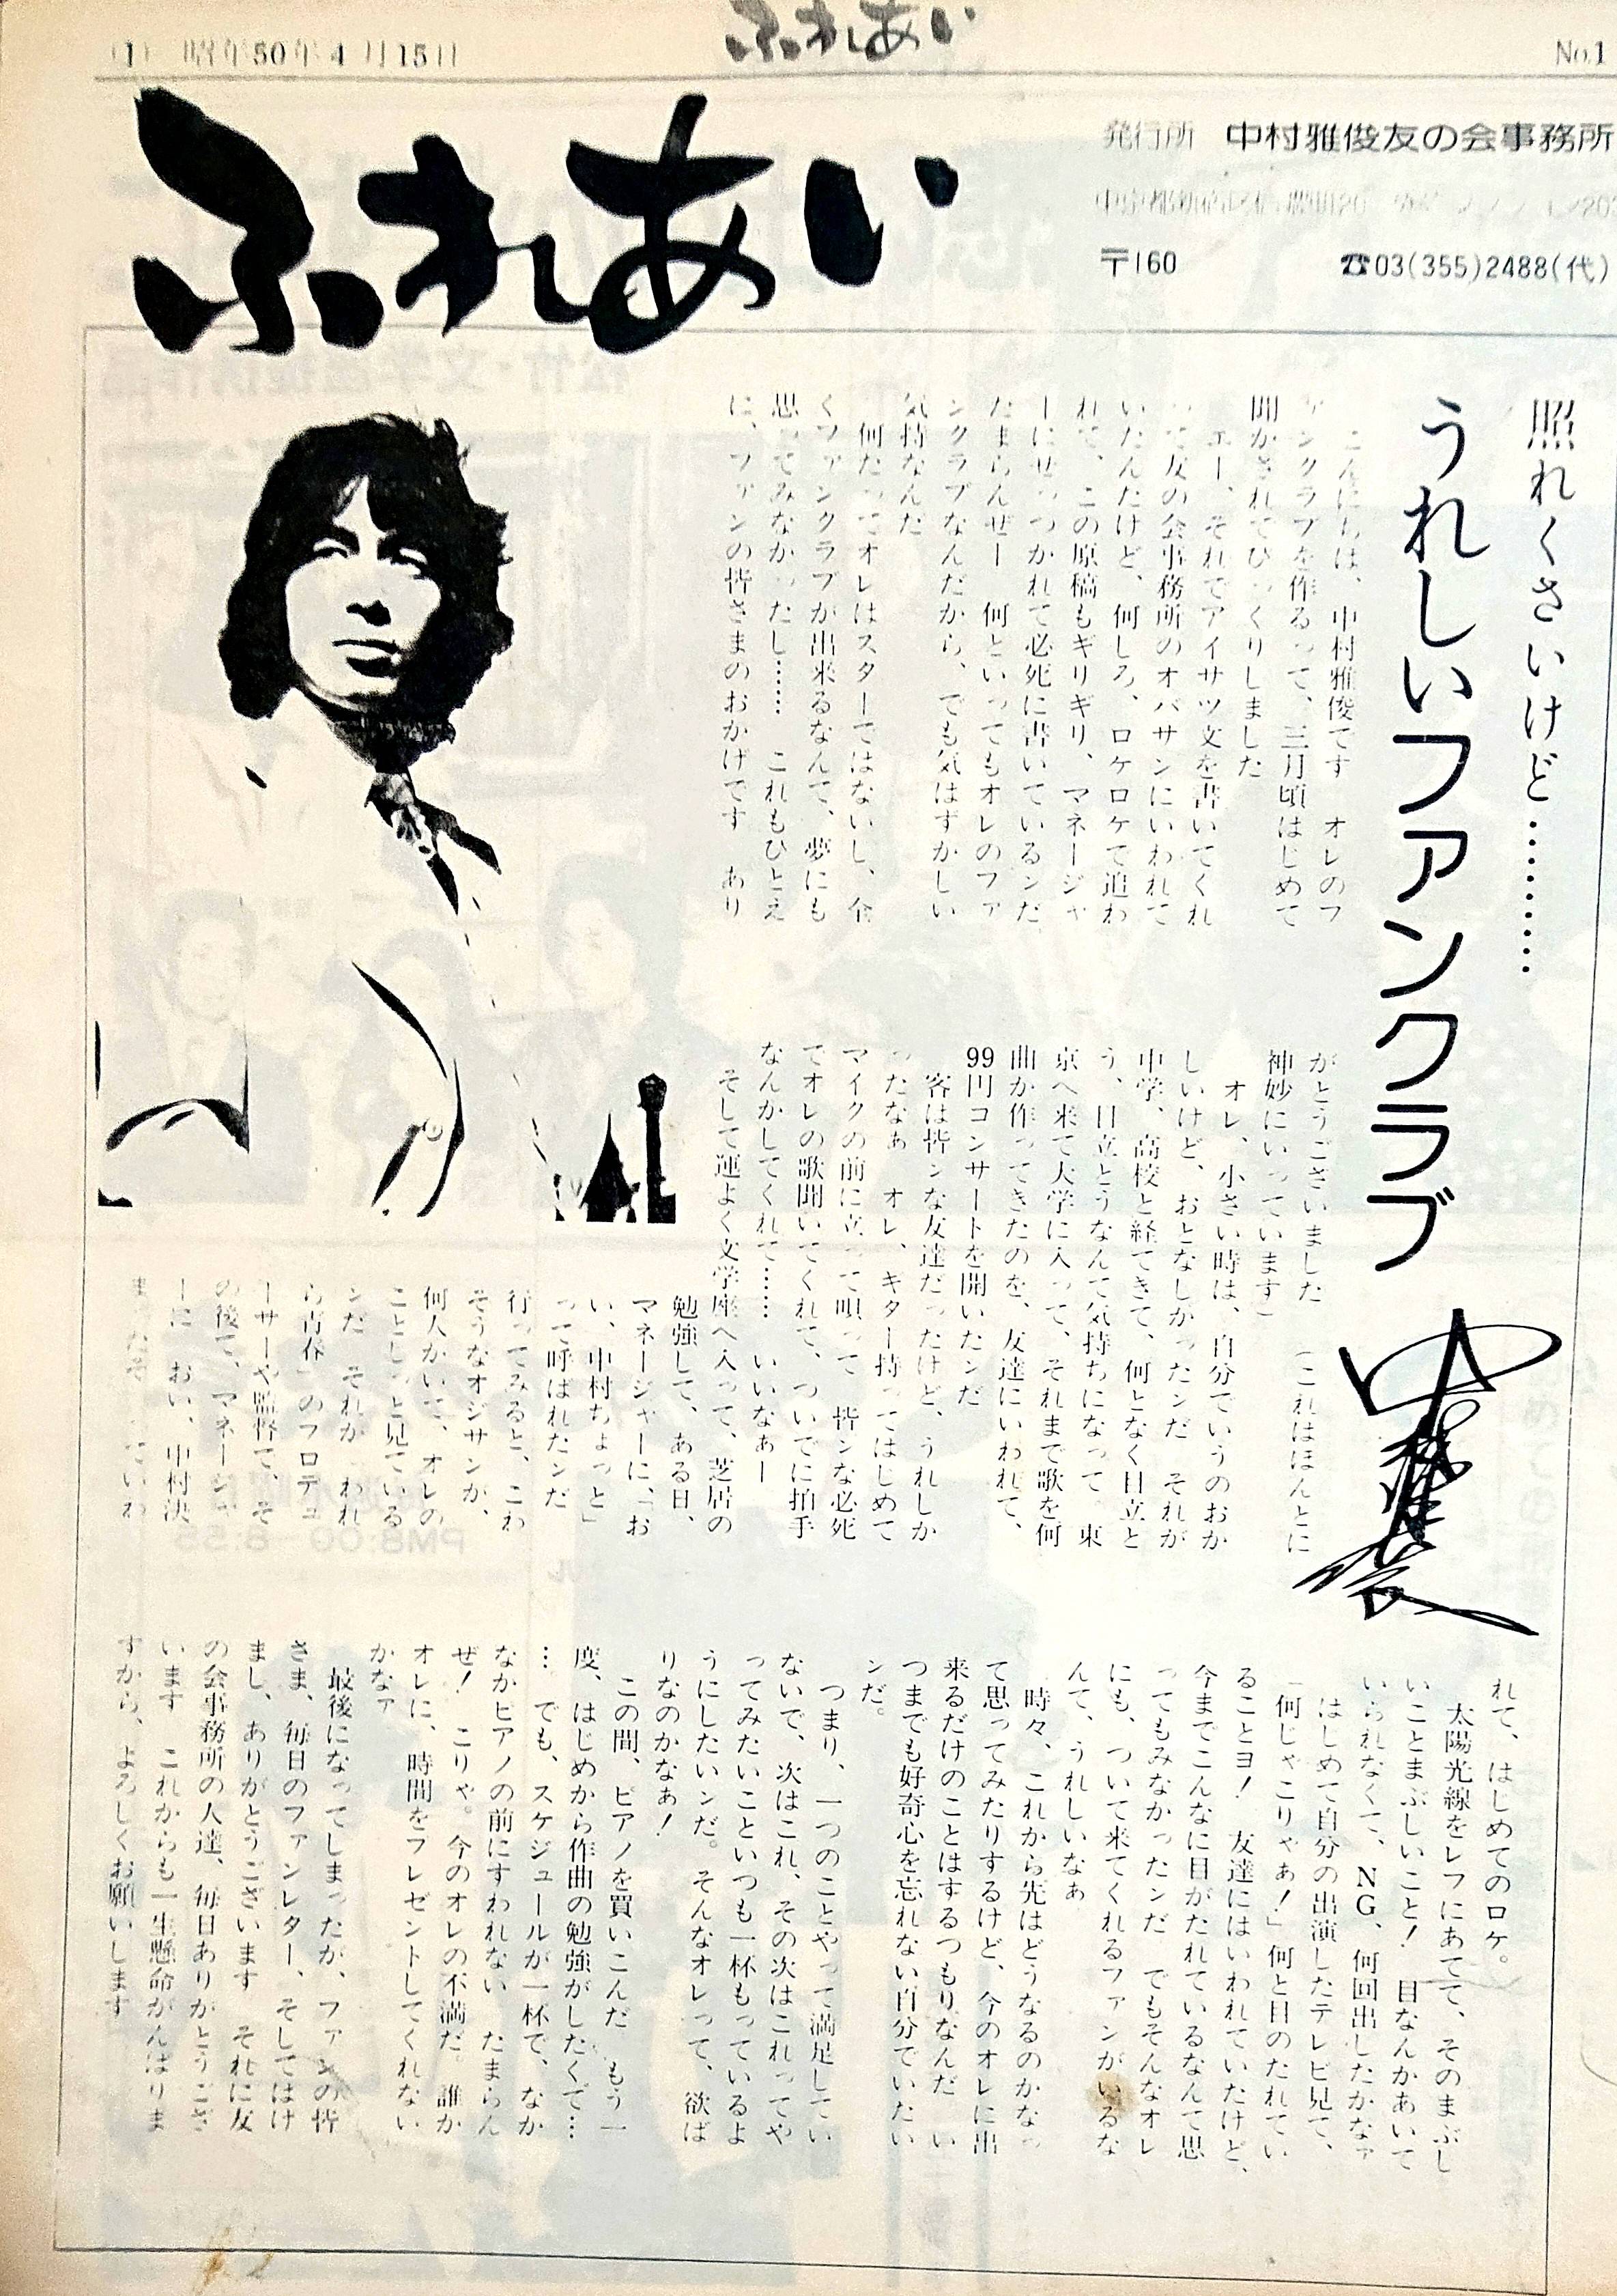 (1) 昭和50年4月15日
ふれあい
No.1
ふれあい
発行所 中村雅俊友の会事務所
〒160 ☎03(355)2488(代)
照れくさいけど………
うれしいファンクラブ
中村雅俊
こんにちは、中村雅俊です オレのフ
ァンクラブを作るって、三月頃はじめて
聞かされてびっくりしました
エー、それでアイサツ文を書いてくれ
って友の会事務所のオバサンにいわれて
いたんだけど、何しろ、ロケロケで追わ
れて、この原稿もギリギリ、マネージャ
ーにせっつかれて必死に書いているンだ
たまらんぜー 何といってもオレのファ
ンクラブなんだから、でも気はずかしい
気持なんだ
何たってオレはスターではないし、全
くファンクラブが出来るなんて、夢にも
思ってみなかったし…… これもひとえ
に、ファンの皆さまのおかげです あり
がとうございました (これはほんとに
神妙にいっています)
オレ、小さい時は、自分でいうのおか
しいけど、おとなしかったンだ それが
中学、高校と経てきて、何となく目立と
う、目立とうなんて気持ちになって 東
京へ来て大学に入って、それまで歌を何
曲か作ってきたのを、友達にいわれて、
99円コンサートを開いたンだ
客は皆ンな友達だったけど、うれしか
ったなぁ オレ、ギター持ってはじめて
マイクの前に立って唄って 皆ンな必死
でオレの歌聞いてくれて、ついでに拍手
なんかしてくれて…… いいなぁー
そして運よく文学座へ入って、芝居の
勉強して、ある日、
マネージャーに、「お
い、中村ちょっと」
って呼ばれたンだ
行ってみると、こわ
そうなオジサンが、
何人かいて、オレの
ことじっと見ている
ンだ それが「われ
ら青春」のプロデュ
ーサーや監督で、そ
の後で、マネージャ
ーに おい、中村決
まったぞ っていわ
れて、はじめてのロケ。
太陽光線をレフにあてて、そのまぶし
いことまぶしいこと! 目なんかあいて
いられなくて、NG、何回出したかなァ
はじめて自分の出演したテレビ見て、
「何じゃこりゃぁ!」何と目のたれてい
ることヨ! 友達にはいわれていたけど、
今までこんなに目がたれているなんて思
ってもみなかったンだ でもそんなオレ
にも、ついて来てくれるファンがいるな
んて、うれしいなぁ
時々、これから先はどうなるのかなっ
て思ってみたりするけど、今のオレに出
来るだけのことはするつもりなんだ い
つまでも好奇心を忘れない自分でいたい
ンだ。
つまり、一つのことやって満足してい
ないで、次はこれ、その次はこれってや
ってみたいこといつも一杯もっているよ
うにしたいンだ。そんなオレって、欲ば
りなのかなぁ!
この間、ピアノを買いこんだ もう一
度、はじめから作曲の勉強がしたくて…
… でも、スケジュールが一杯で、なか
なかピアノの前にすわれない たまらん
ぜ! こりゃ。今のオレの不満だ 誰か
オレに、時間をプレゼントしてくれない
かなァ
最後になってしまったが、ファンの皆
さま、毎日のファンレター、そしてはげ
まし、ありがとうございます それに友
の会事務所の人達、毎日ありがとうござ
います これからも一生懸命がんばりま
すから、よろしくお願いします